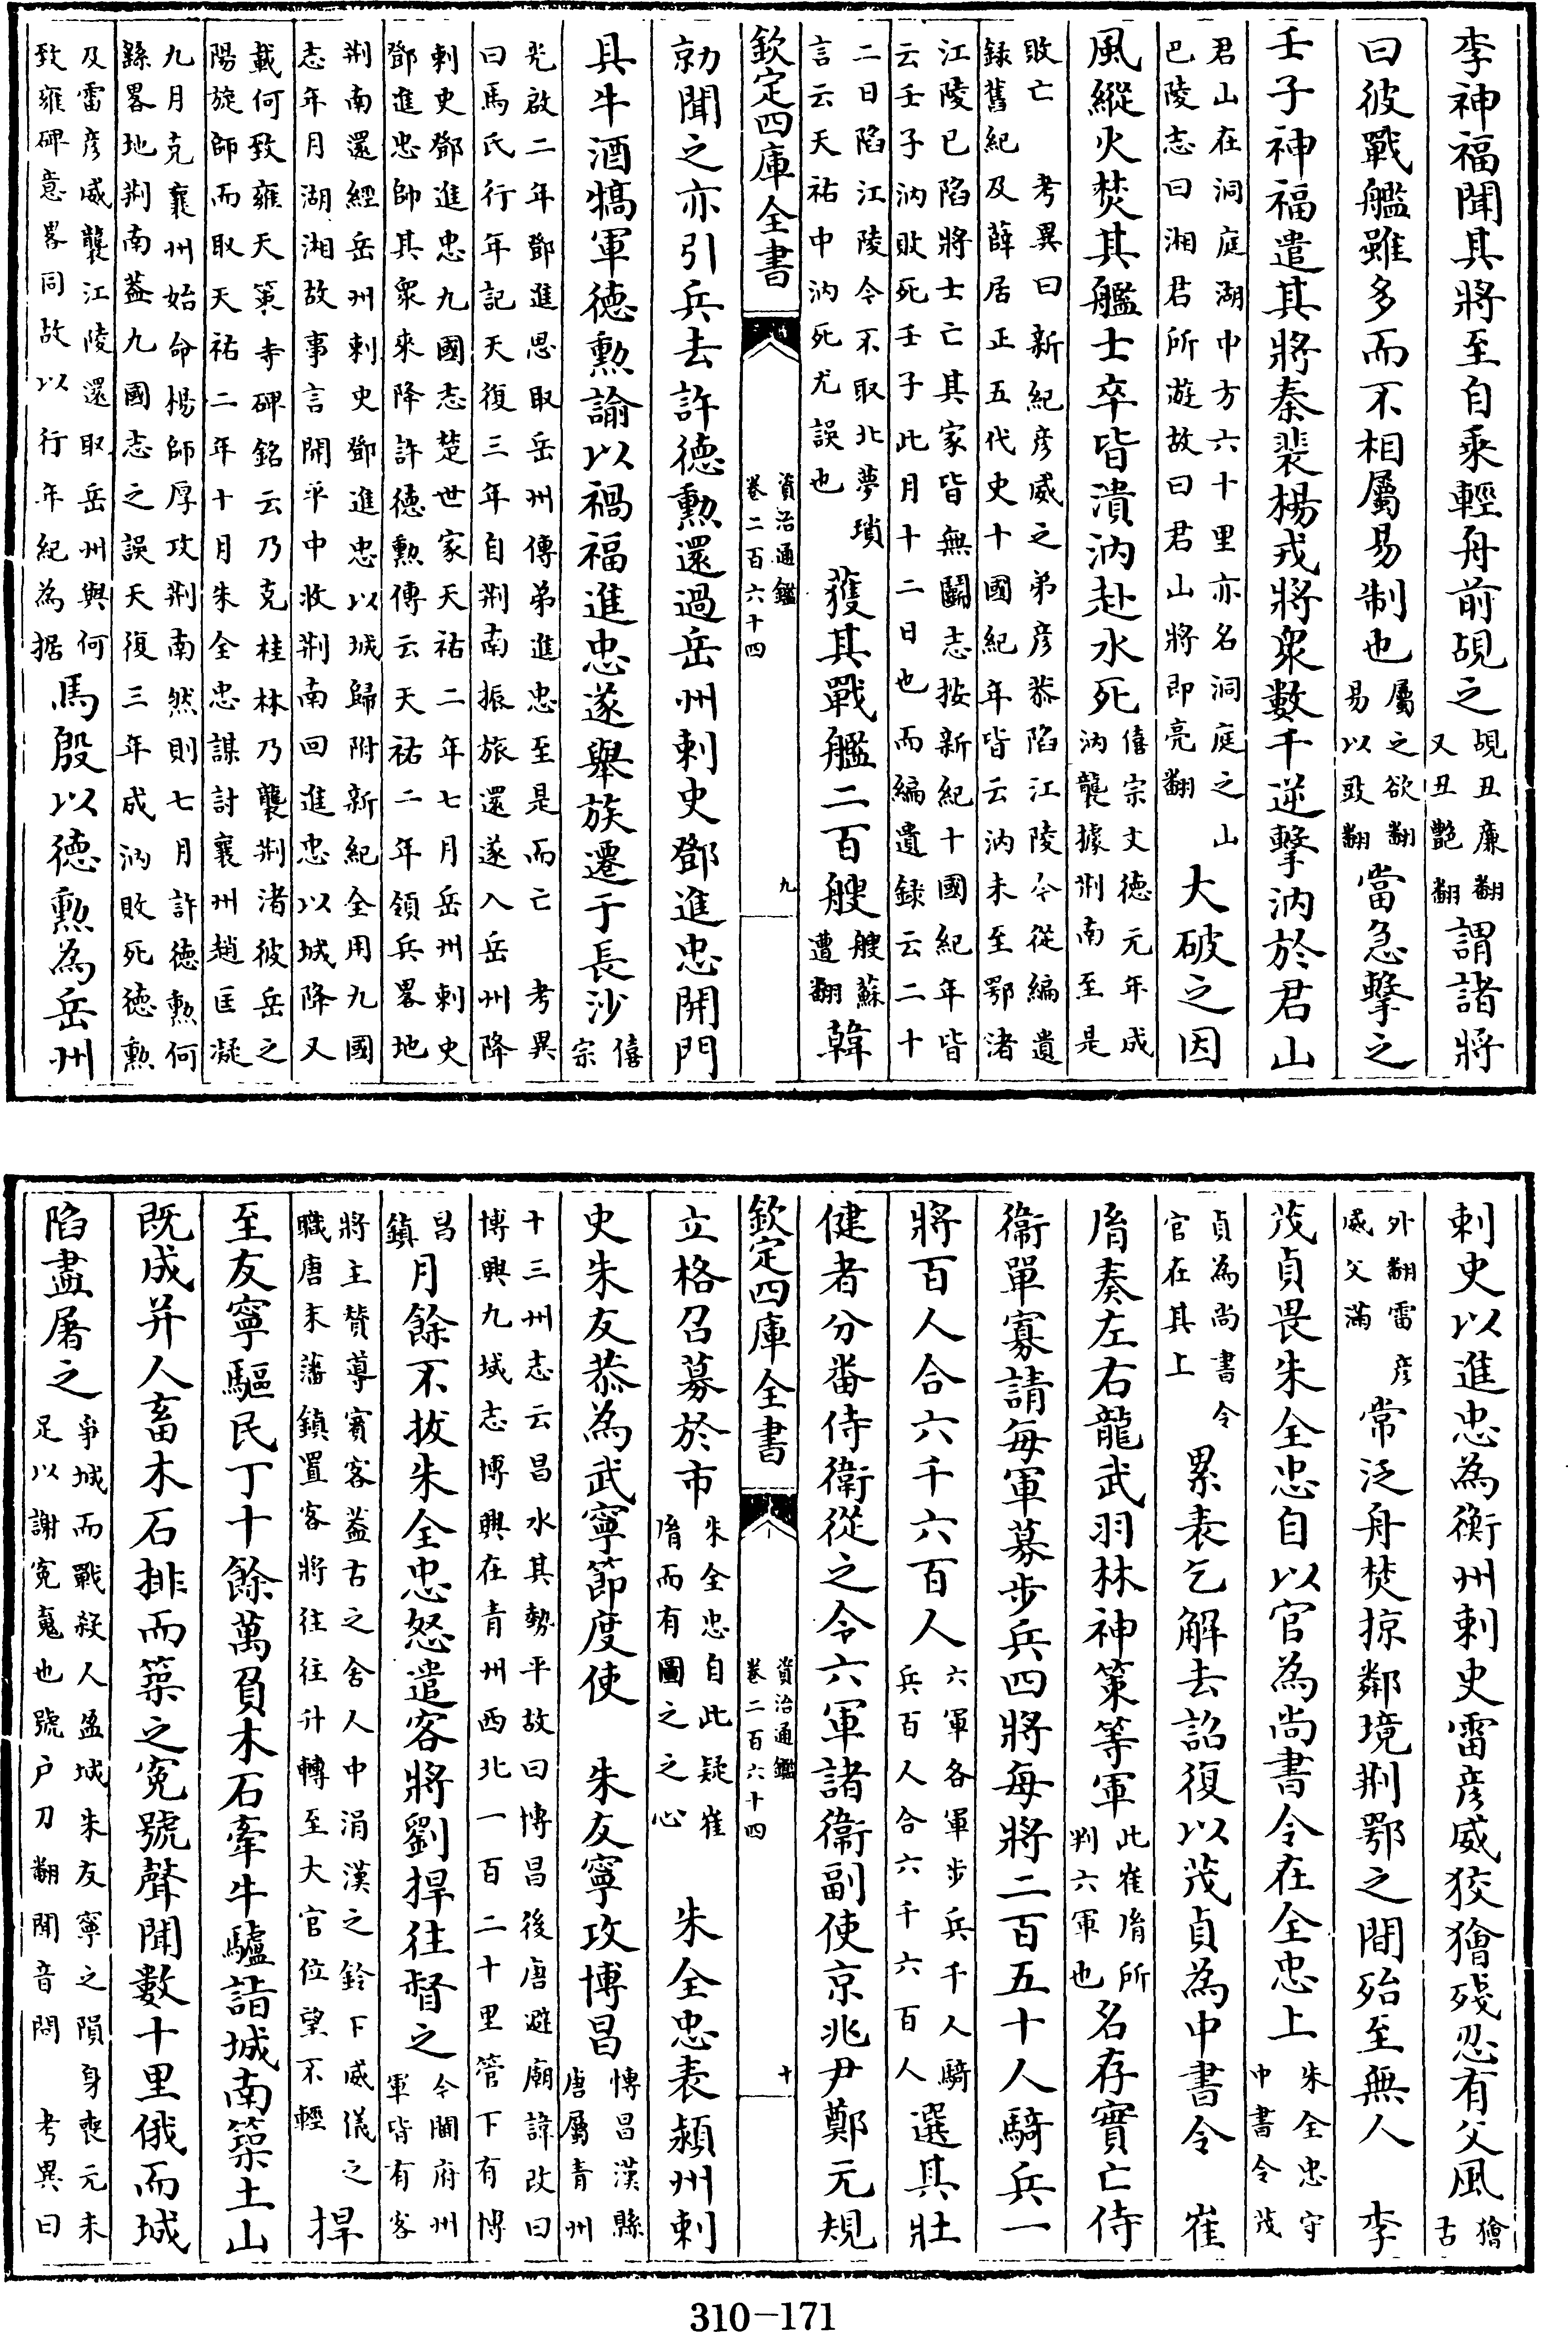 李神福聞其將至自乘輕舟前覘之覘丑廉翻又丑艷翻謂諸將
曰彼戰艦雖多而不相屬易制也屬之欲翻易以豉翻當急擊之
壬子神福遣其將秦裴楊戎將衆數千逆擊汭於君山
君山在洞庭湖中方六十里亦名洞庭之山巴陵志曰湘君所遊故曰君山將即亮翻大破之因
風縱火焚其艦士卒皆潰汭赴水死僖宗文德元年成汭襲據荆南至是
敗亡考異曰新紀彦威之弟彦恭陷江陵今從編遺録舊紀及薛居正五代史十國紀年皆云汭未至鄂渚
江陵已陷將士亡其家皆無鬭志按新紀十國紀年皆云壬子汭敗死壬子此月十二日也而編遺録云二十
二日陷江陵今不取北夢瑣言云天祐中汭死尤誤也獲其戰艦二百艘艘蘇遭翻韓
欽定四庫全書
資治通鑑卷二百六十四
九
勍聞之亦引兵去許德勲還過岳州刺史鄧進忠開門
具牛酒犒軍德勲諭以禍福進忠遂舉族遷于長沙僖宗
光啟二年鄧進思取岳州傳弟進忠至是而亡考異曰馬氏行年記天復三年自荆南振旅還遂入岳州降
刺史鄧進忠九國志楚世家天祐二年七月岳州刺史鄧進忠帥其衆來降許德勲傳云天祐二年領兵畧地
荆南還經岳州刺史鄧進忠以城歸附新紀全用九國志年月湖湘故事言開平中收荆南回進忠以城降又
載何致雍天策寺碑銘云乃克桂林乃襲荆渚彼岳之陽旋師而取天祐二年十月朱全忠謀討襄州趙匡凝
九月克襄州始命楊師厚攻荆南然則七月許德勲何緣畧地荆南葢九國志之誤天復三年成汭敗死德勲
及雷彦威襲江陵還取岳州與何致雍碑意畧同故以行年紀為据馬殷以德勲為岳州
刺史以進忠為衡州刺史雷彦威狡獪殘忍有父風獪古
外翻雷彦威父滿常泛舟焚掠鄰境荆鄂之間殆至無人李
茂貞畏朱全忠自以官為尚書令在全忠上朱全忠守中書令茂
貞為尚書令官在其上累表乞解去詔復以茂貞為中書令崔
胤奏左右龍武羽林神策等軍此崔胤所判六軍也名存實亡侍
衞單寡請每軍募步兵四將每將二百五十人騎兵一
將百人合六千六百人六軍各軍步兵千人騎兵百人合六千六百人選其壯
健者分番侍衛從之令六軍諸衞副使京兆尹鄭元規
欽定四庫全書
資治通鑑卷二百六十四
十
立格召募於市朱全忠自此疑崔胤而有圖之之心朱全忠表潁州刺
史朱友恭為武寧節度使朱友寧攻博昌博昌漢縣唐屬青州
十三州志云昌水其勢平故曰博昌後唐避廟諱改曰博興九域志博興在青州西北一百二十里管下有博
昌鎮月餘不拔朱全忠怒遣客將劉捍往督之今閫府州軍皆有客
將主贊導賓客葢古之舍人中涓漢之鈴下威儀之職唐末藩鎮置客將往往升轉至大官位望不輕捍
至友寧驅民丁十餘萬負木石牽牛驢詣城南築土山
既成并人畜木石排而築之寃號聲聞數十里俄而城
陷盡屠之爭城而戰殺人盈城朱友寧之隕身喪元未足以謝寃䰟也號户刀翻聞音問考異曰
310-171